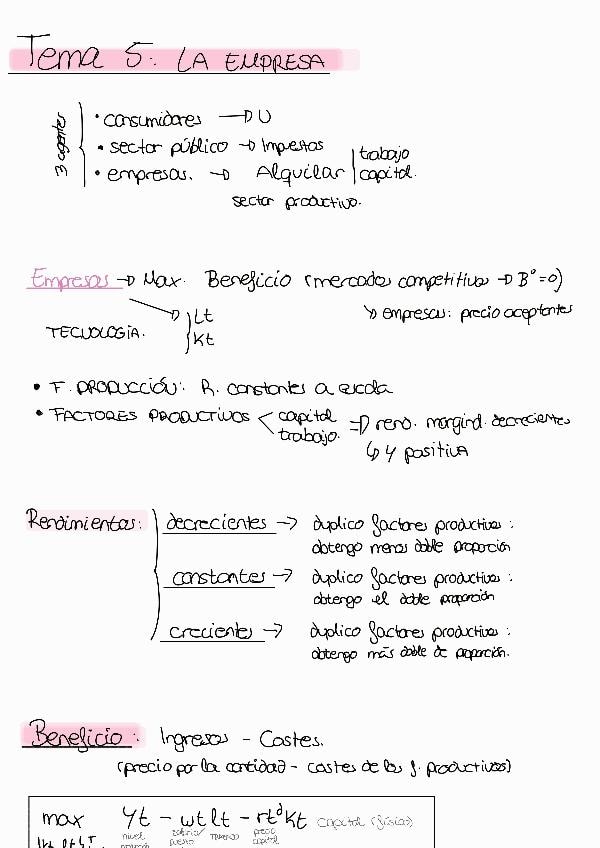 Tema 5: LA EMPRESA
3 agentes
• consumidores → U
• sector público → Impuestos
• empresas. → Alquilar | trabajo
capital.
sector productivo.
Empresas → Max. Beneficio (mercados competitivos → Bº=0)
↳ empresas: precio aceptantes
TECNOLOGÍA. → Lt
Kt
• F. PRODUCCIÓN: R. constantes a escala
• FACTORES PRODUCTIVOS < capital
trabajo. ⇒ rend. margind. decrecientes
↳ y positiva
Rendimientos:
decrecientes → duplico factores productivos:
obtengo menos doble proporción
constantes → duplico factores productivos:
obtengo el doble proporción
crecientes → duplico factores productivos:
obtengo más doble de proporción.
Beneficio: Ingresos - Costes.
(precio por la cantidad - costes de los f. productivos)
max Yt - wtlt - rtᵈKt capital (físico)
nivel salario/ TRABAJO precio
capital